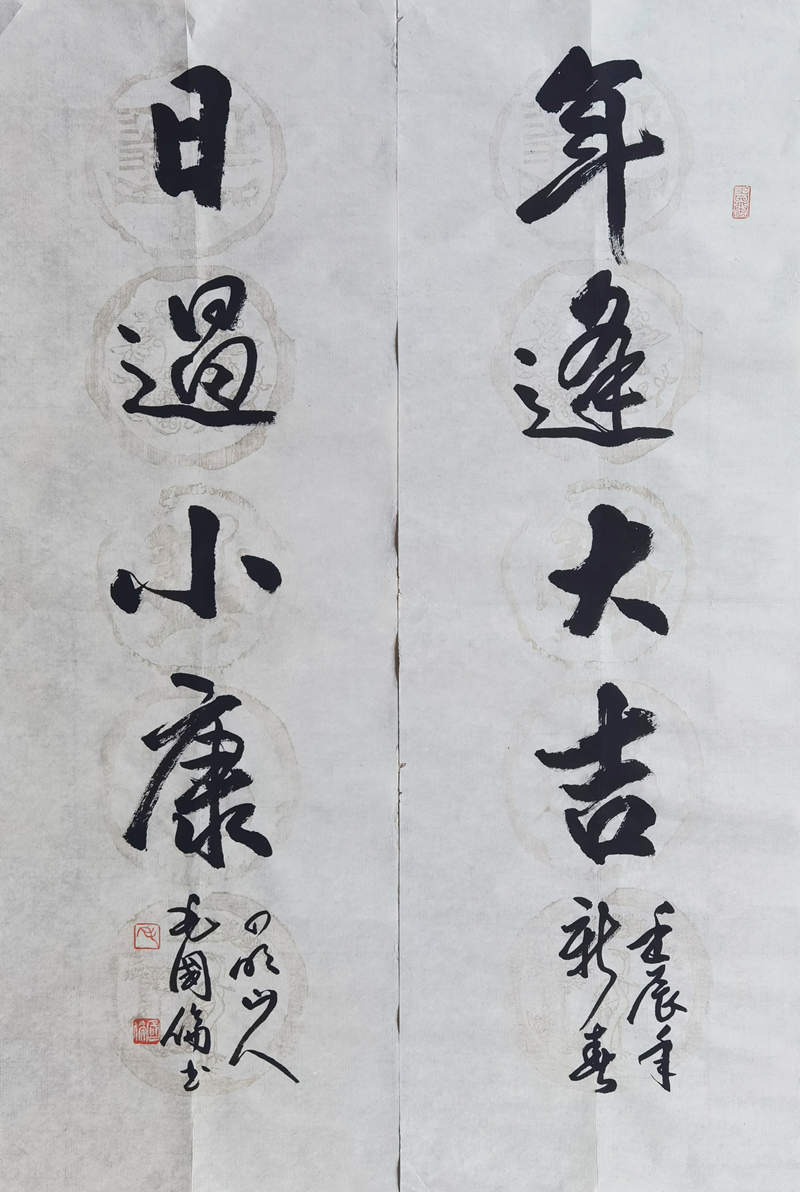 年逢大吉
壬辰年
新春
日過小康
四明山人
毛國倫书